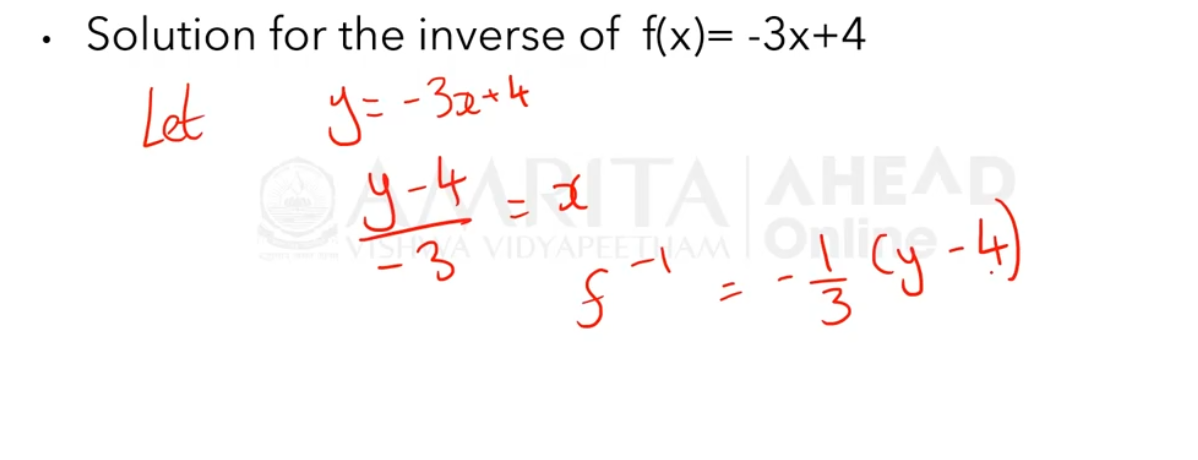 • Solution for the inverse of f(x)= -3x+4
Let y= -3x+4
y-4/-3 = x
f^-1 = -1/3 (y-4)
AMRITA AHEAD
VISHWA VIDYAPEETHAM Online